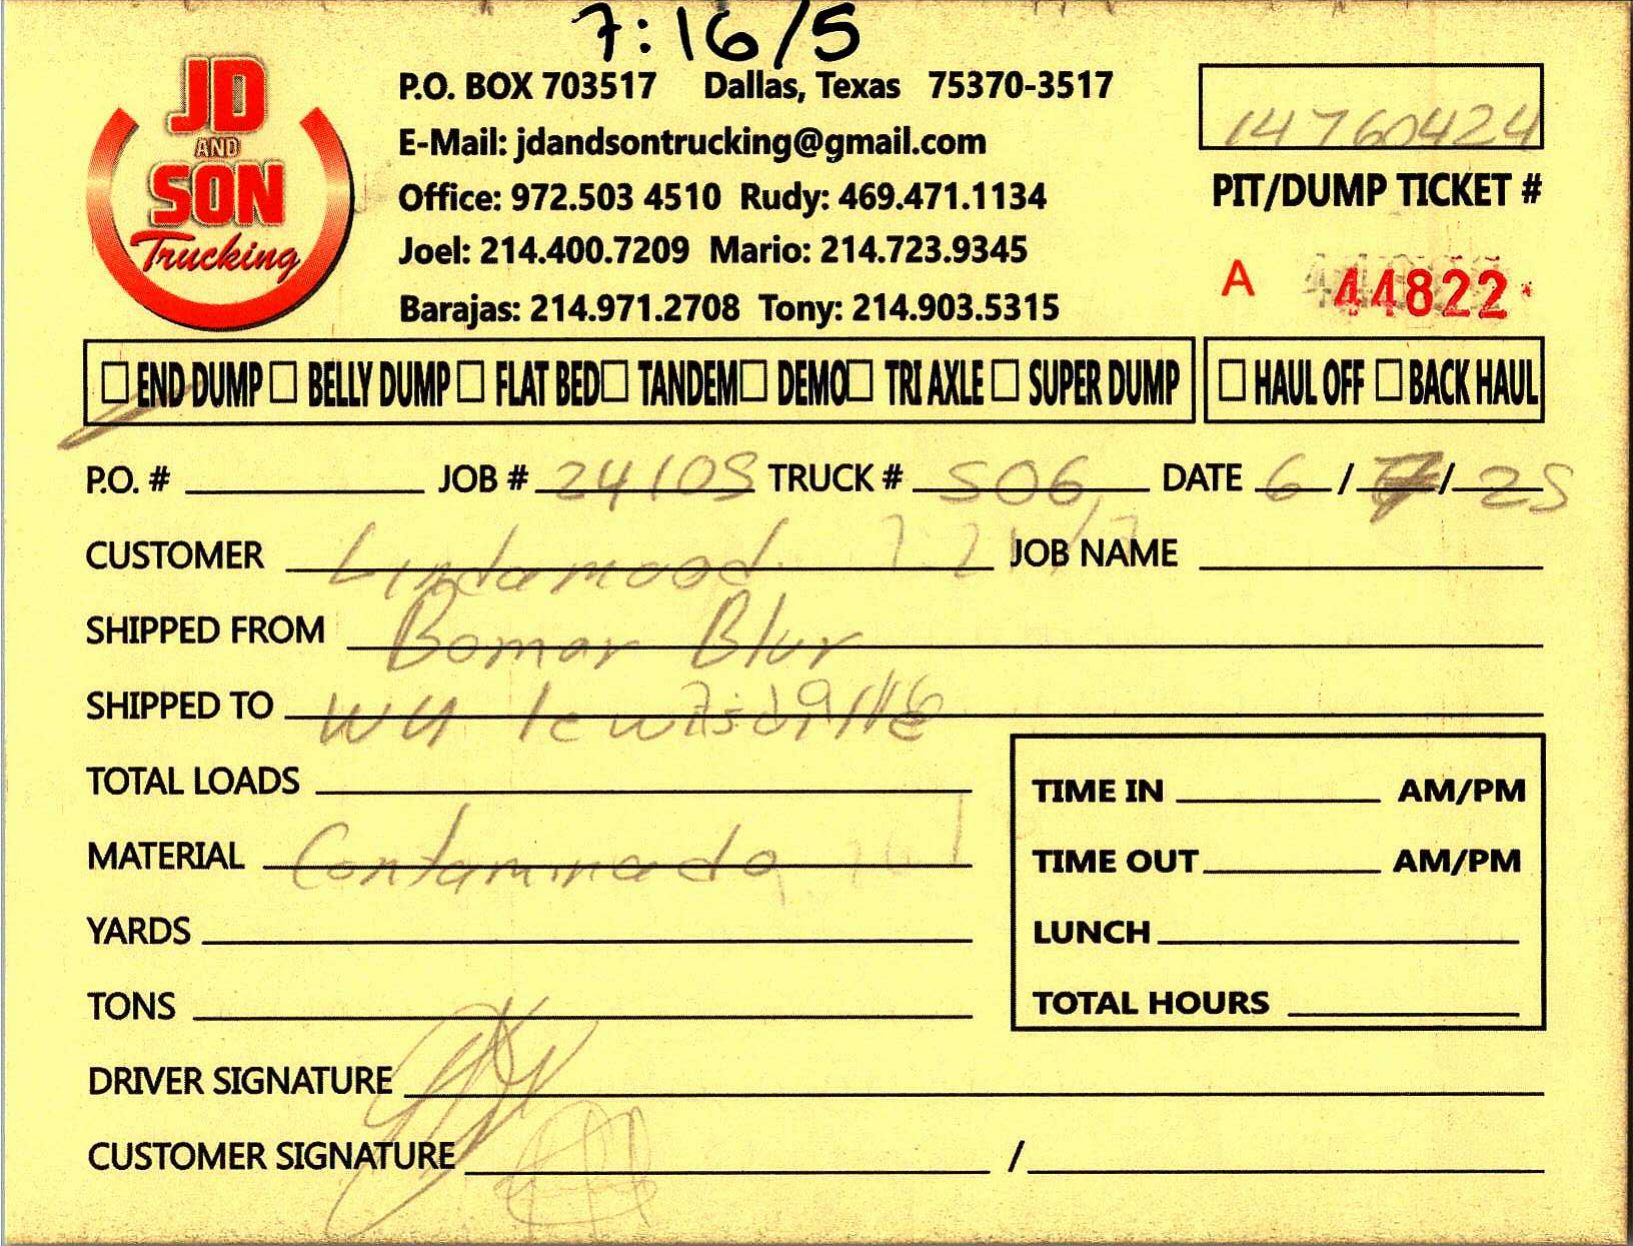 7:16/5
JD
AND
SON
Trucking
P.O. BOX 703517 Dallas, Texas 75370-3517
E-Mail: jdandsontrucking@gmail.com
Office: 972.503 4510 Rudy: 469.471.1134
Joel: 214.400.7209 Mario: 214.723.9345
Barajas: 214.971.2708 Tony: 214.903.5315
14760424
PIT/DUMP TICKET #
A 44822
☐ END DUMP ☐ BELLY DUMP ☐ FLAT BED ☐ TANDEM ☐ DEMO ☐ TRI AXLE ☐ SUPER DUMP ☐ HAUL OFF ☐ BACK HAUL
P.O. # JOB # 24105 TRUCK # 506 DATE 6 / / 25
CUSTOMER Lindamood JOB NAME
SHIPPED FROM Bomar Blur
SHIPPED TO WM
TOTAL LOADS
MATERIAL Contaminada
YARDS
TONS
TIME IN AM/PM
TIME OUT AM/PM
LUNCH
TOTAL HOURS
DRIVER SIGNATURE
CUSTOMER SIGNATURE /